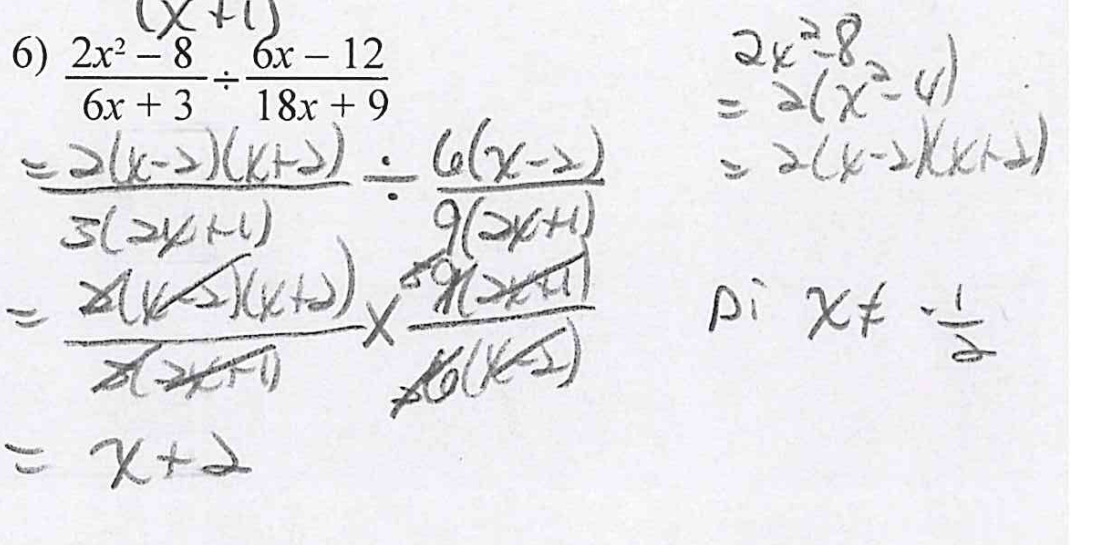 (x+1)
6) (2x² – 8)/(6x + 3) ÷ (6x – 12)/(18x + 9)
= 2(x-2)(x+2)/3(2x+1) ÷ 6(x-2)/9(2x+1)
= 2(x-2)(x+2)/3(2x+1) × 9(2x+1)/6(x-2)
= x+2
2x²-8
= 2(x²-4)
= 2(x-2)(x+2)
Di x≠ -1/2